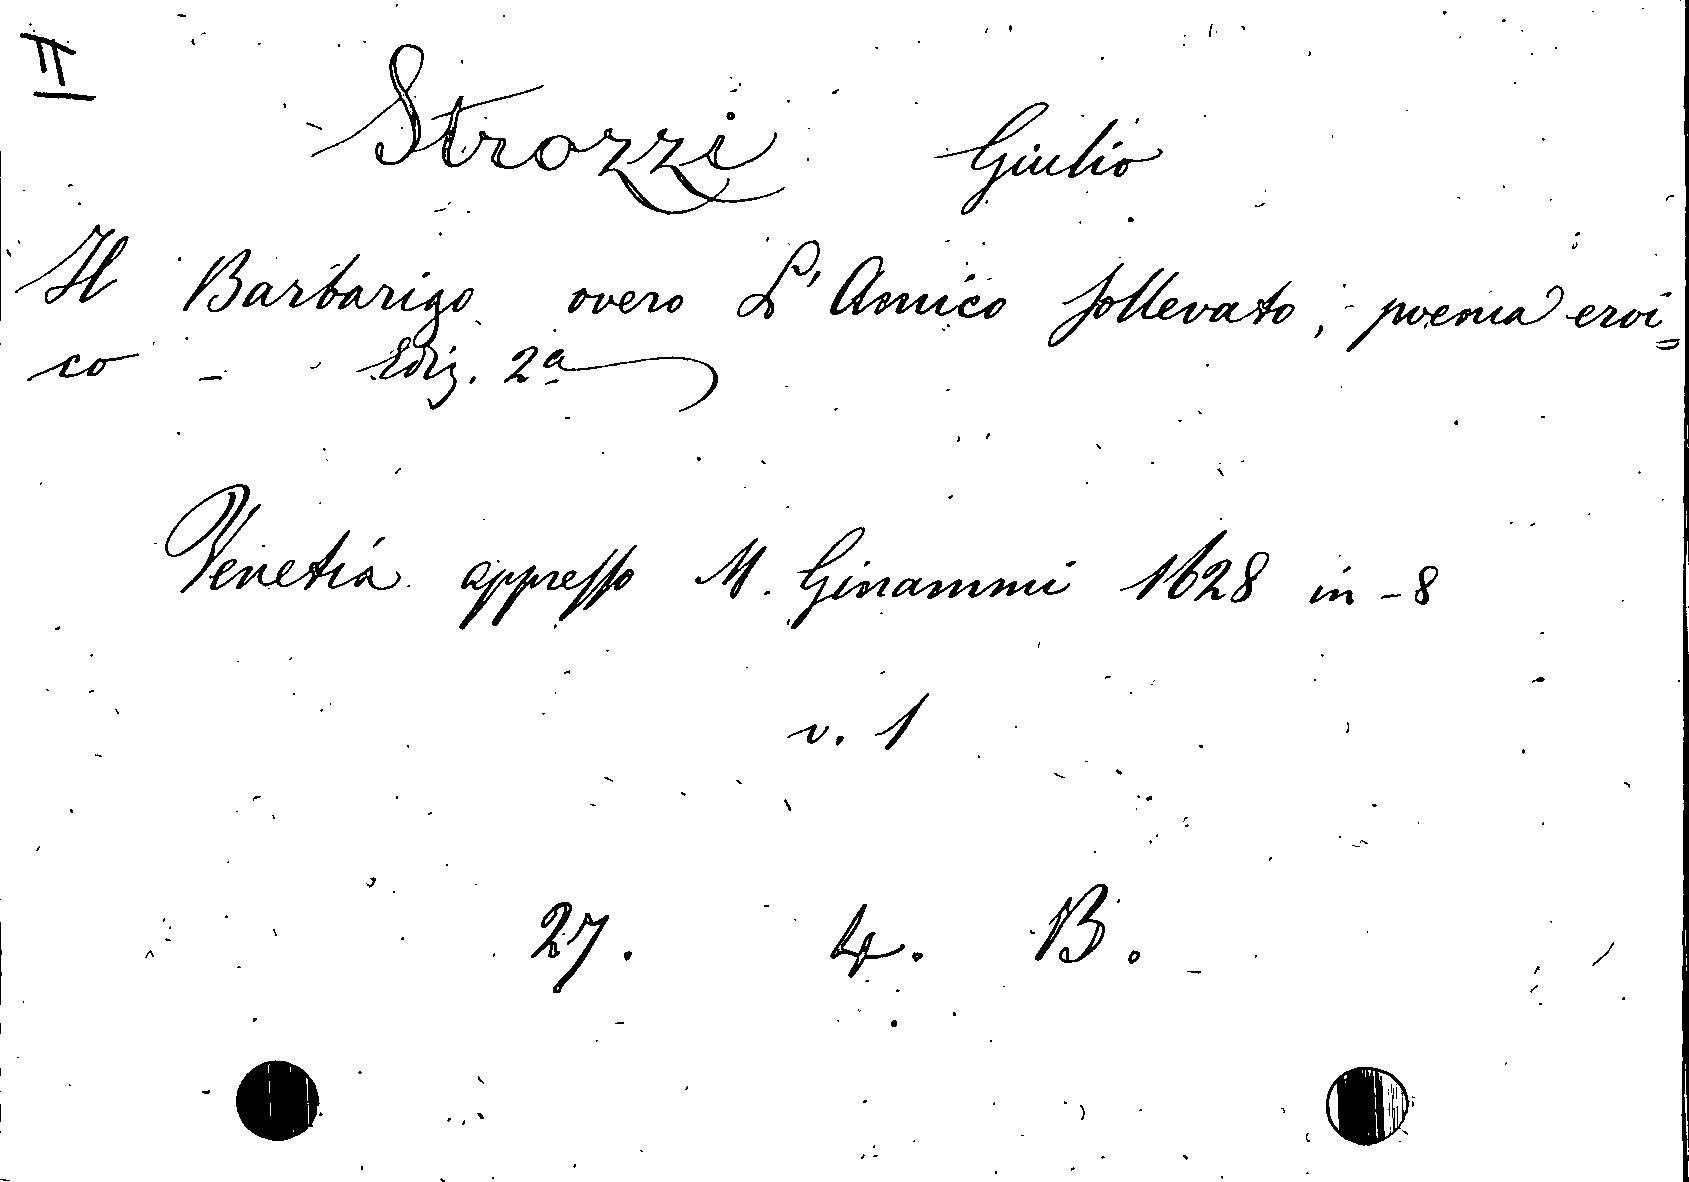 II
Strozzi Giulio
Il Barbarigo overo L'Amico sollevato, poema eroi=
co - Ediz. 2a
Venetia appresso M. Ginammi 1628 in-8
v. 1
27. 4. B.